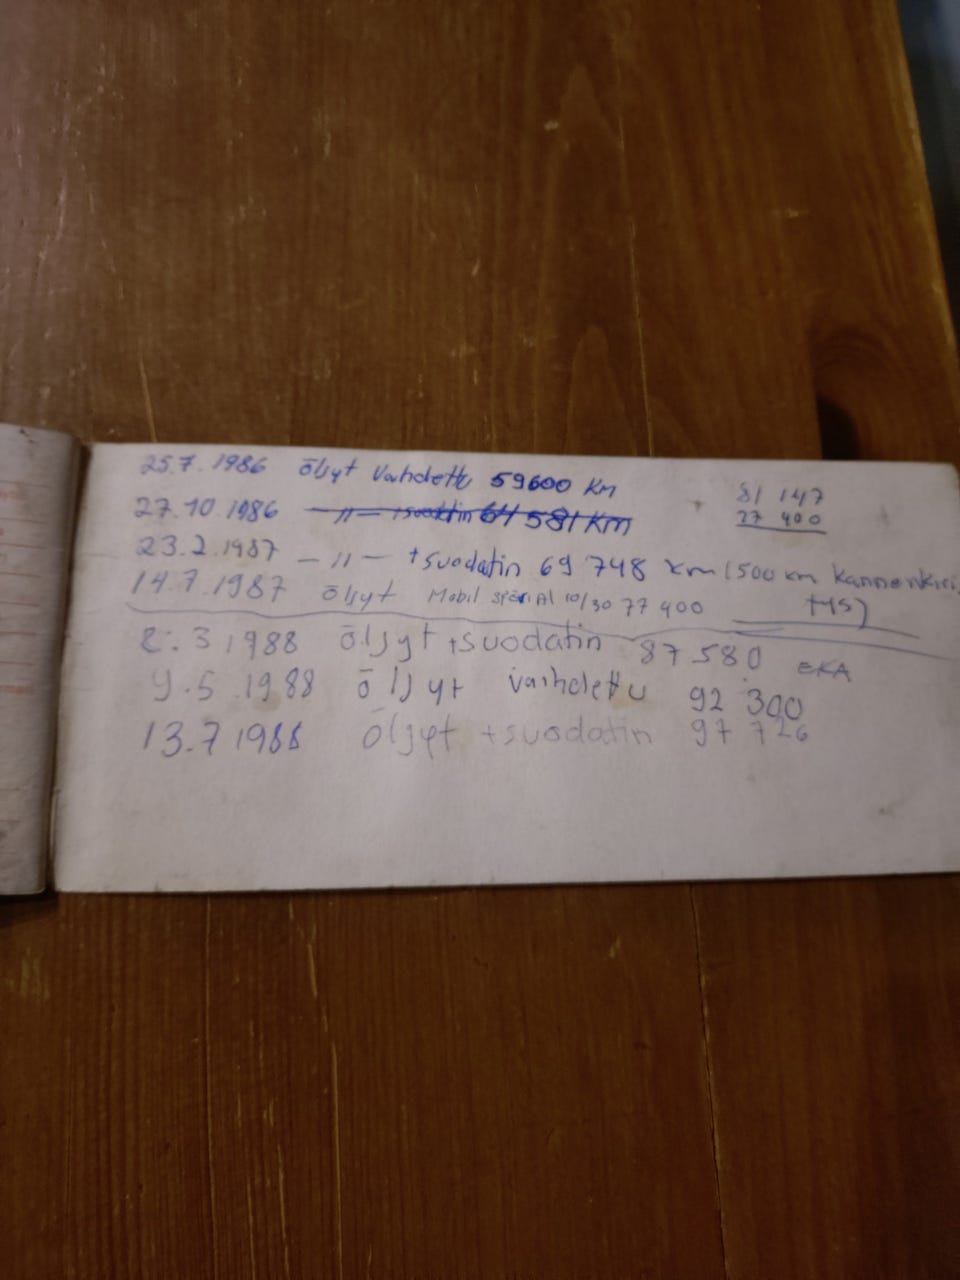 25.7.1986 öljyt vaihdettu 59600 KM
81 147
77 400
27.10.1986 —〃— +suodatin 64 581 KM
23.2.1987 —〃— +suodatin 69 748 km (500 km kannenkiri.
14.7.1987 öljyt Mobil speciAl 10/30 77 400
2.3 1988 öljyt +suodatin 87 580 EKA
9.5.1988 öljyt vaihdettu 92 300
13.7 1988 öljyt +suodatin 97 726